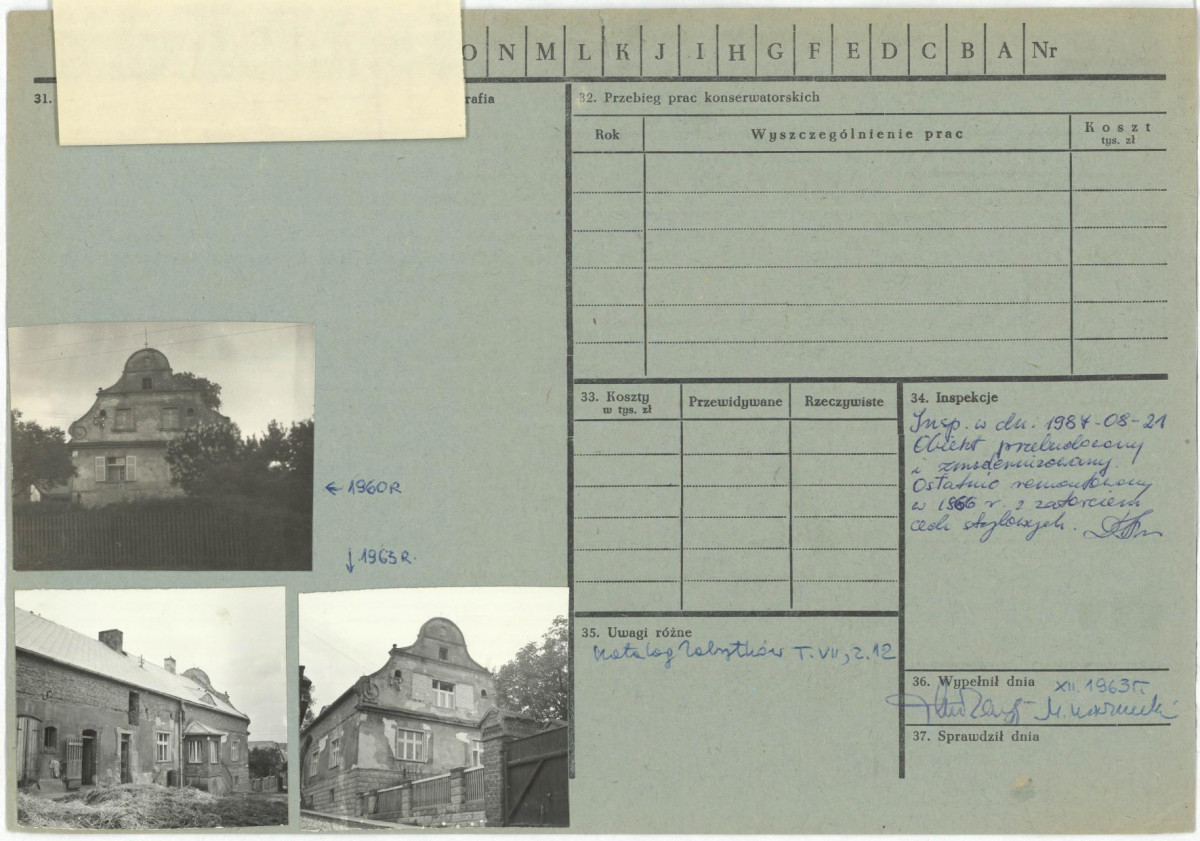 O N M L K J I H G F E D C B A Nr
31.
rafia
32. Przebieg prac konserwatorskich
Rok
Wyszczególnienie prac
Koszt
tys. zł
33. Koszty
w tys. zł
Przewidywane
Rzeczywiste
34. Inspekcje
Insp. w dn. 1984-08-21
Obiekt przebudowany
i zmodernizowany.
Ostatnio remontowany
w 1966 r. z zatarciem
cech stylowych.
← 1960 R
↓ 1963 R.
35. Uwagi różne
Katalog Zabytków T. VII, z. 12
36. Wypełnił dnia
XII. 1963 r.
37. Sprawdził dnia